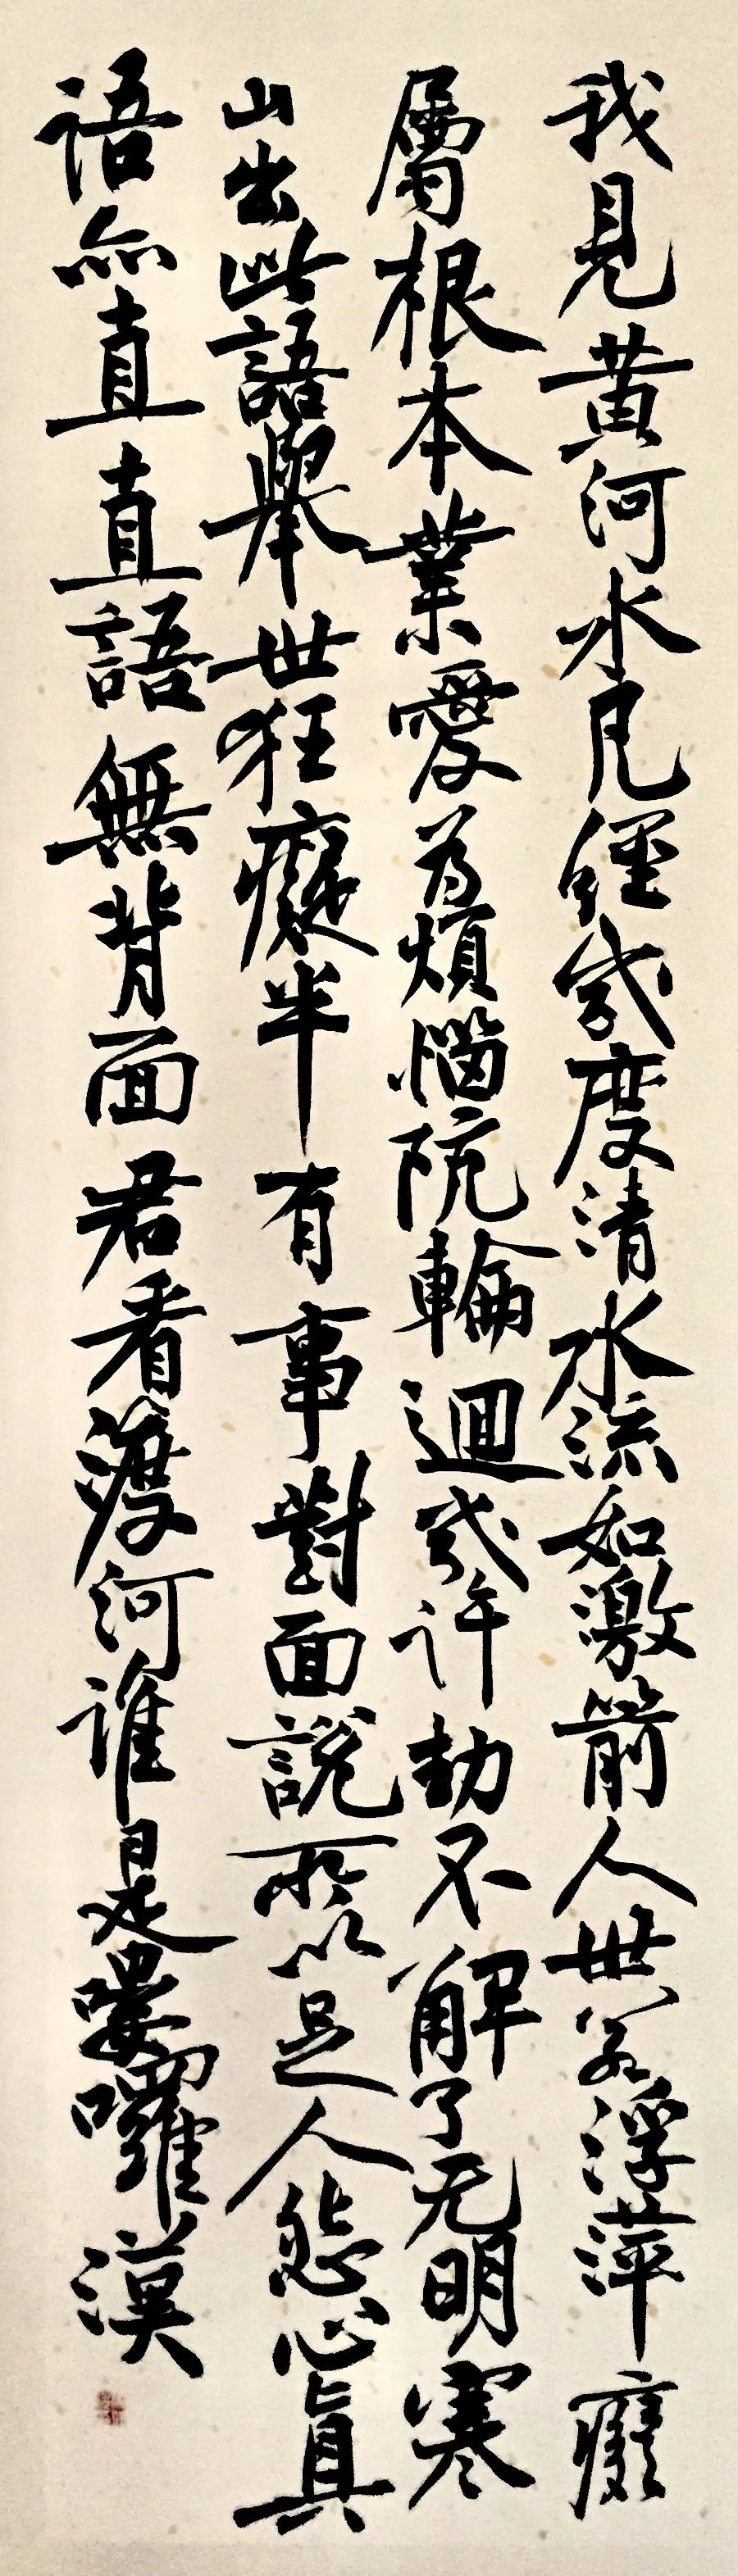 我見黄河水凡經幾度清水流如激箭人世若浮萍癡
屬根本業愛為煩惱阬輪迴幾許劫不解了无明寒
山出此語舉世狂癡半有事對面說所以足人怨心真
語亦直直語無背面君看渡河誰是嘍囉漢